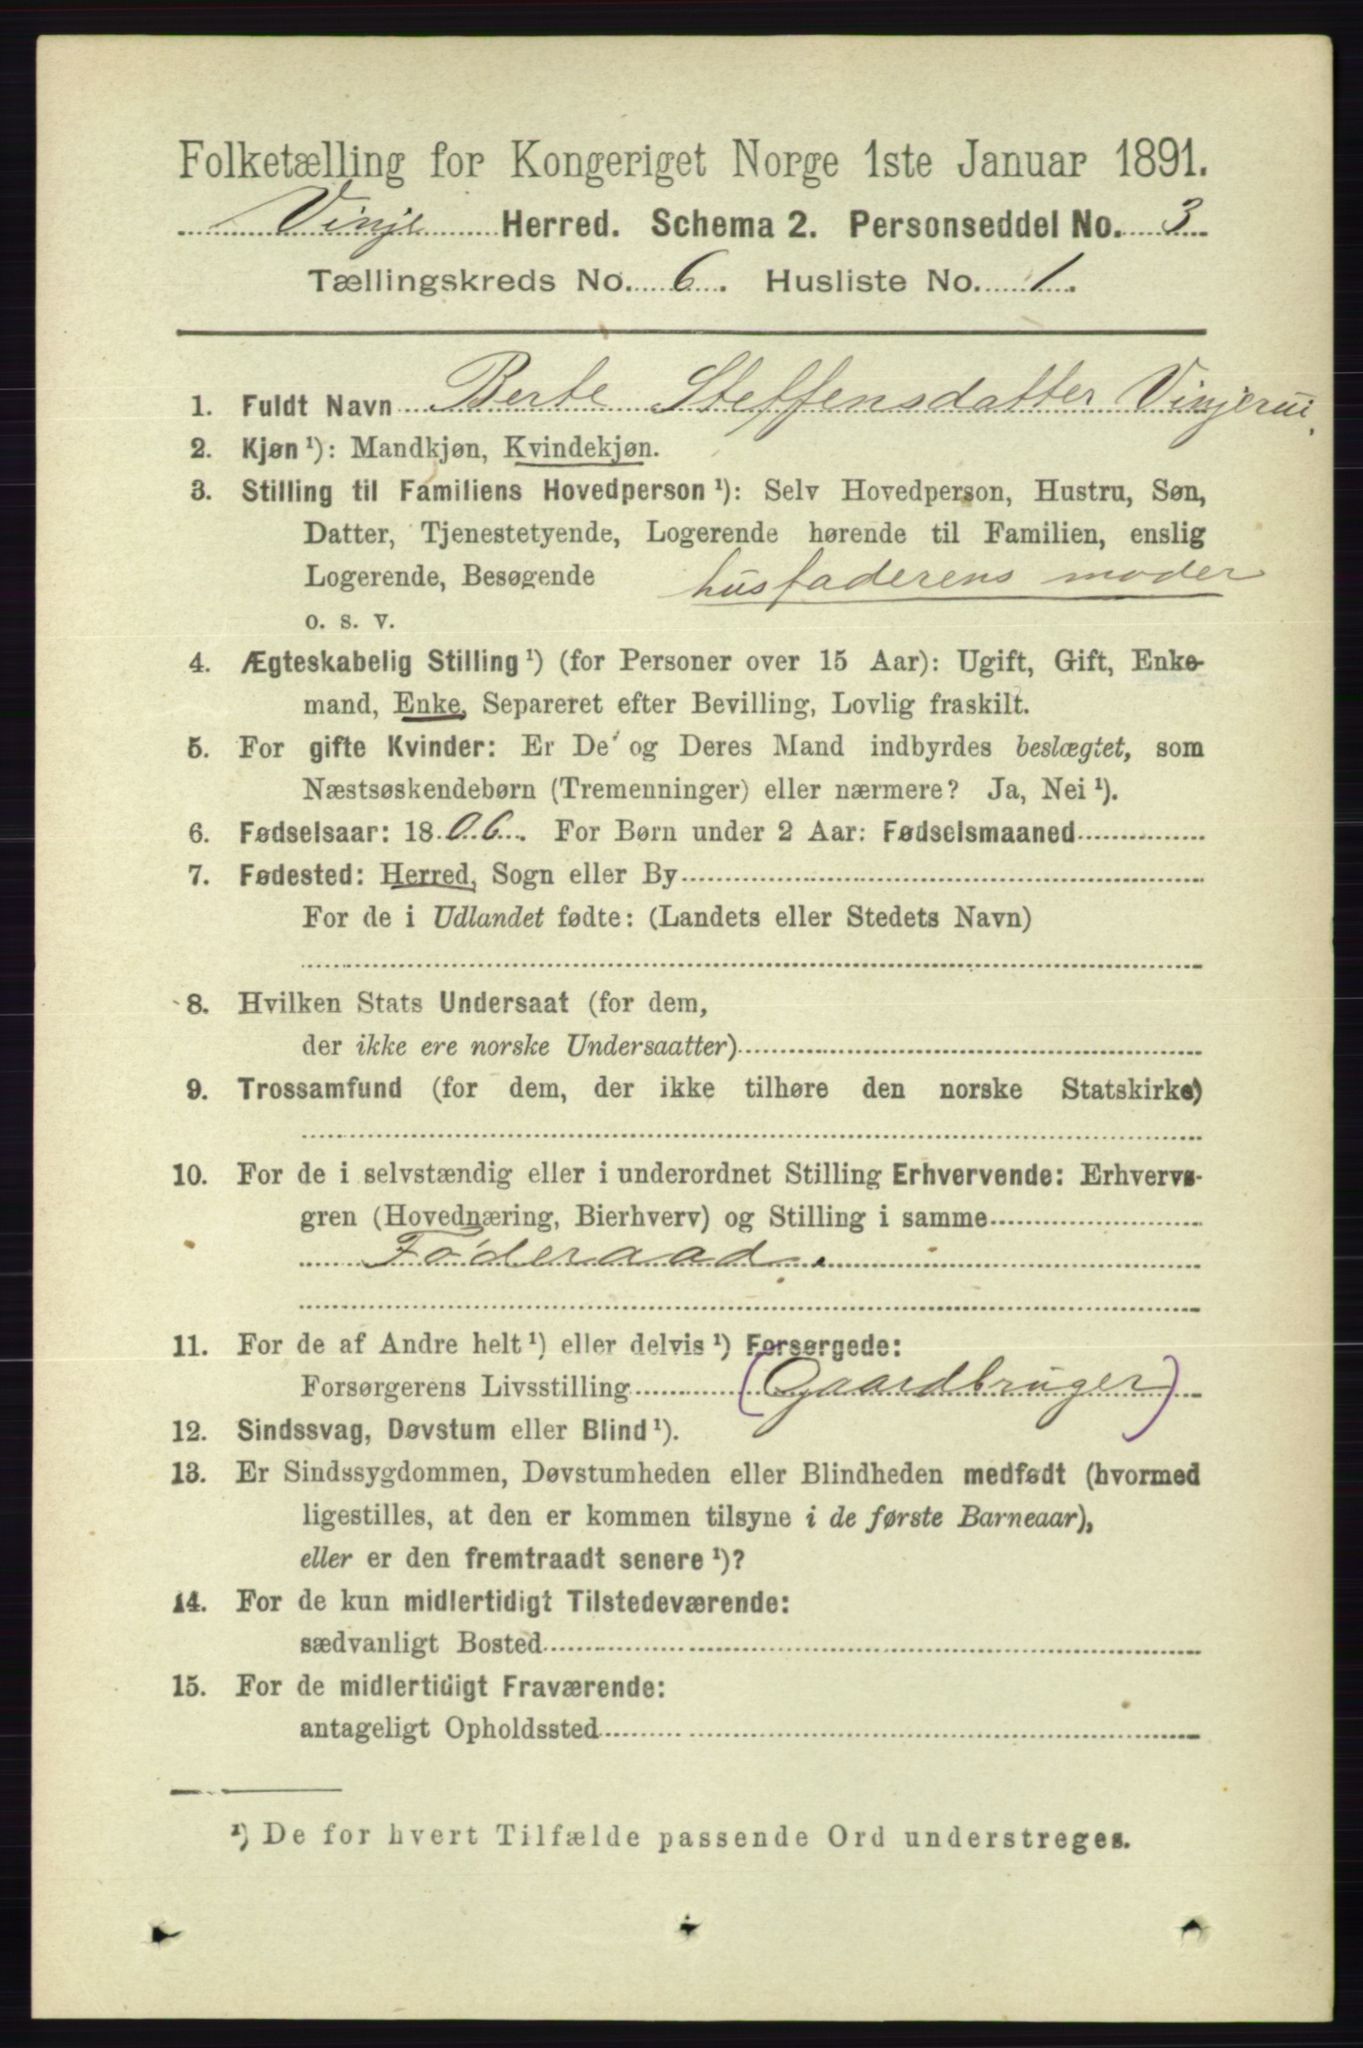 Folketælling for Kongeriget Norge 1ste Januar 1891.
Vinje Herred. Schema 2. Personseddel No. 3
Tællingskreds No. 6. Husliste No. 1.
1. Fuldt Navn Berte Steffensdatter Vinjerui.
2. Kjøn ¹): Mandkjøn, Kvindekjøn.
3. Stilling til Familiens Hovedperson ¹): Selv Hovedperson, Hustru, Søn,
Datter, Tjenestetyende, Logerende hørende til Familien, enslig
Logerende, Besøgende husfaderens moder
o. s. v.
4. Ægteskabelig Stilling ¹) (for Personer over 15 Aar): Ugift, Gift, Enke-
mand, Enke, Separeret efter Bevilling, Lovlig fraskilt.
5. For gifte Kvinder: Er De og Deres Mand indbyrdes beslægtet, som
Næstsøskendebørn (Tremenninger) eller nærmere? Ja, Nei ¹).
6. Fødselsaar: 1806. For Børn under 2 Aar: Fødselsmaaned
7. Fødested: Herred, Sogn eller By
For de i Udlandet fødte: (Landets eller Stedets Navn)
8. Hvilken Stats Undersaat (for dem,
der ikke ere norske Undersaatter)
9. Trossamfund (for dem, der ikke tilhøre den norske Statskirke)
10. For de i selvstændig eller i underordnet Stilling Erhvervende: Erhvervs-
gren (Hovednæring, Bierhverv) og Stilling i samme
Føderaad.
11. For de af Andre helt ¹) eller delvis ¹) Forsørgede:
Forsørgerens Livsstilling (Gaardbruger)
12. Sindssvag, Døvstum eller Blind ¹).
13. Er Sindssygdommen, Døvstumheden eller Blindheden medfødt (hvormed
ligestilles, at den er kommen tilsyne i de første Barneaar),
eller er den fremtraadt senere ¹)?
14. For de kun midlertidigt Tilstedeværende:
sædvanligt Bosted
15. For de midlertidigt Fraværende:
antageligt Opholdssted
¹) De for hvert Tilfælde passende Ord understreges.